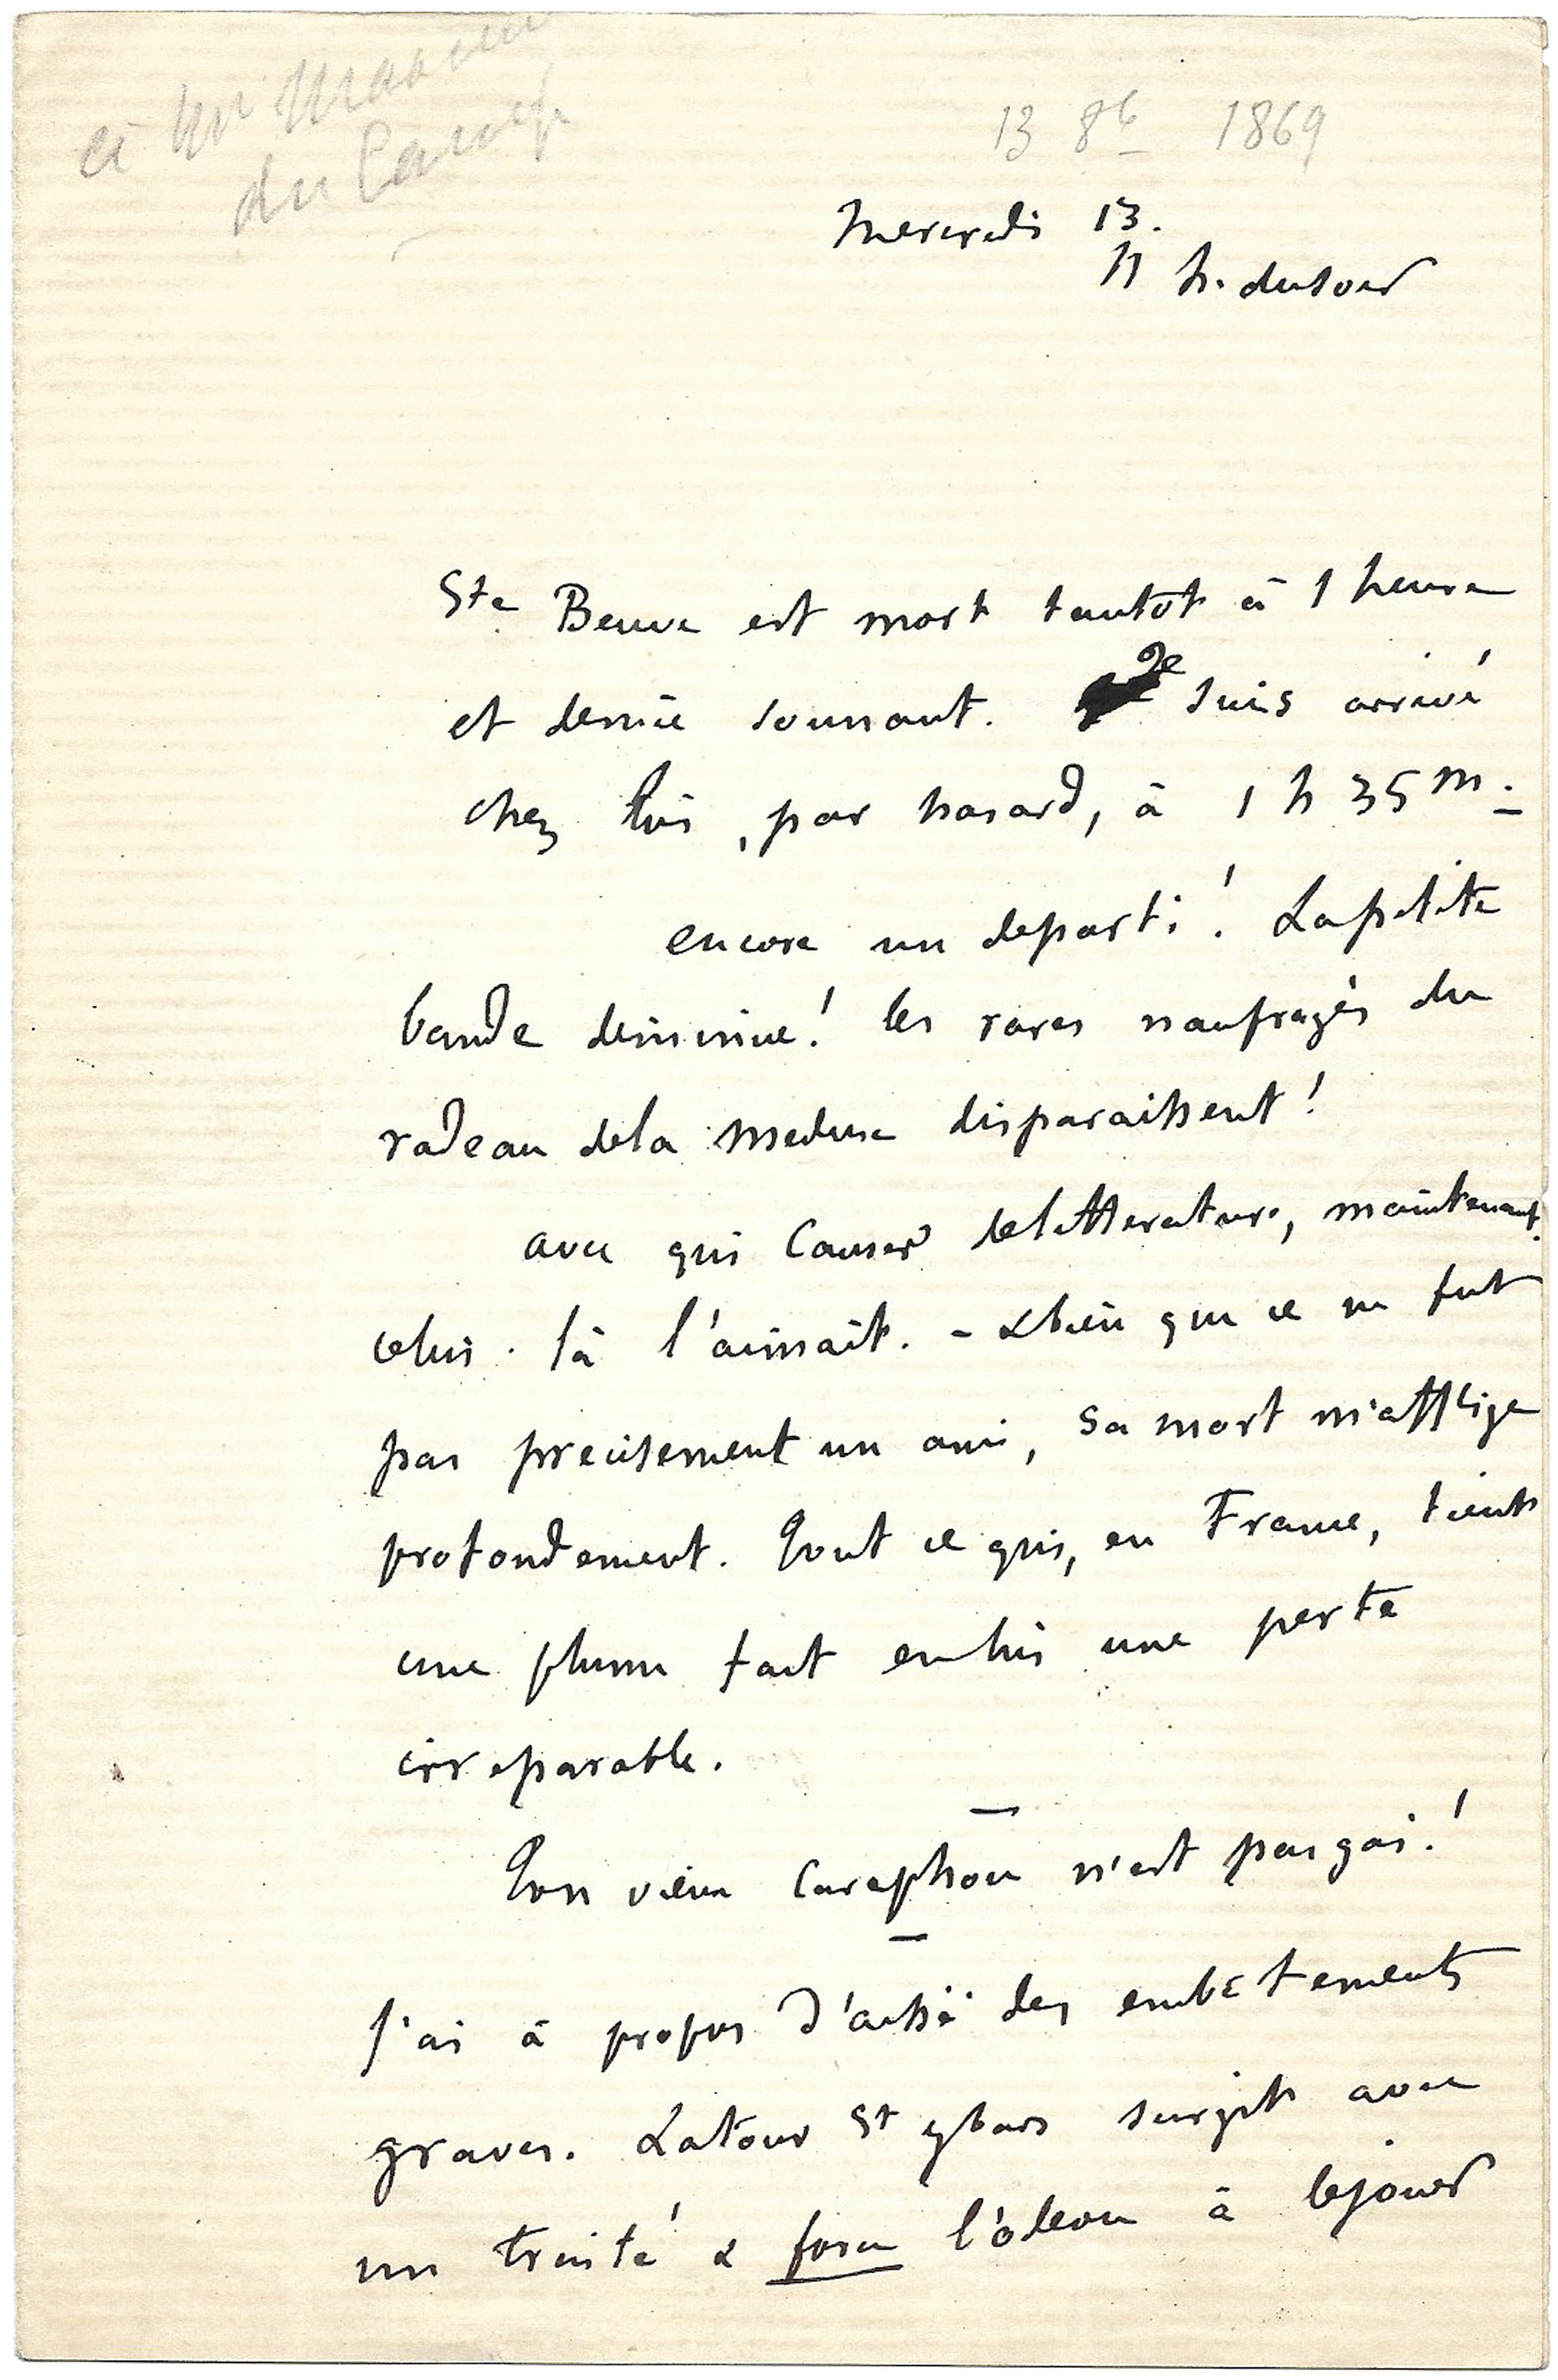 à Mr Maxime
du Camp
13 8b 1869
Mercredi 13.
11 h. du soir
Ste Beuve est mort tantôt à 1 heure
et demie sonnant. Je suis arrivé
chez lui, par hasard, à 1 h 35 m.
encore un de parti! La petite
bande diminue! les rares naufragés du
radeau de la Meduse disparaissent!
avec qui causer de litterature, maintenant.
celui-là l'aimait. - & bien que ce ne fut
pas precisement un ami, sa mort m'afflige
profondement. Tout ce qui, en France, tient
une plume fait en lui une perte
irreparable.
Ton vieux Caraphon n'est pas gai!
J'ai à propos d'aissé des embêtements
graves. Latour St ybars surgit avec
un traité & force l'odeon à le jouer